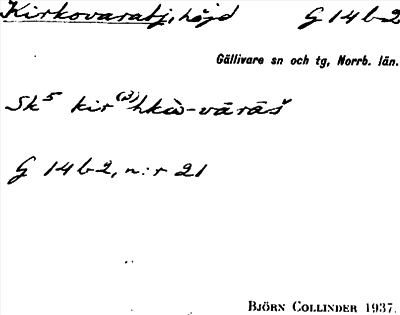 Kirkovaratj, höjd G 14 b 2
Gällivare sn och tg, Norrb. län.
Sk⁵ kir⁽²⁾hkà-vārāš
G 14 b 2, n:r 21
BJÖRN COLLINDER 1937.